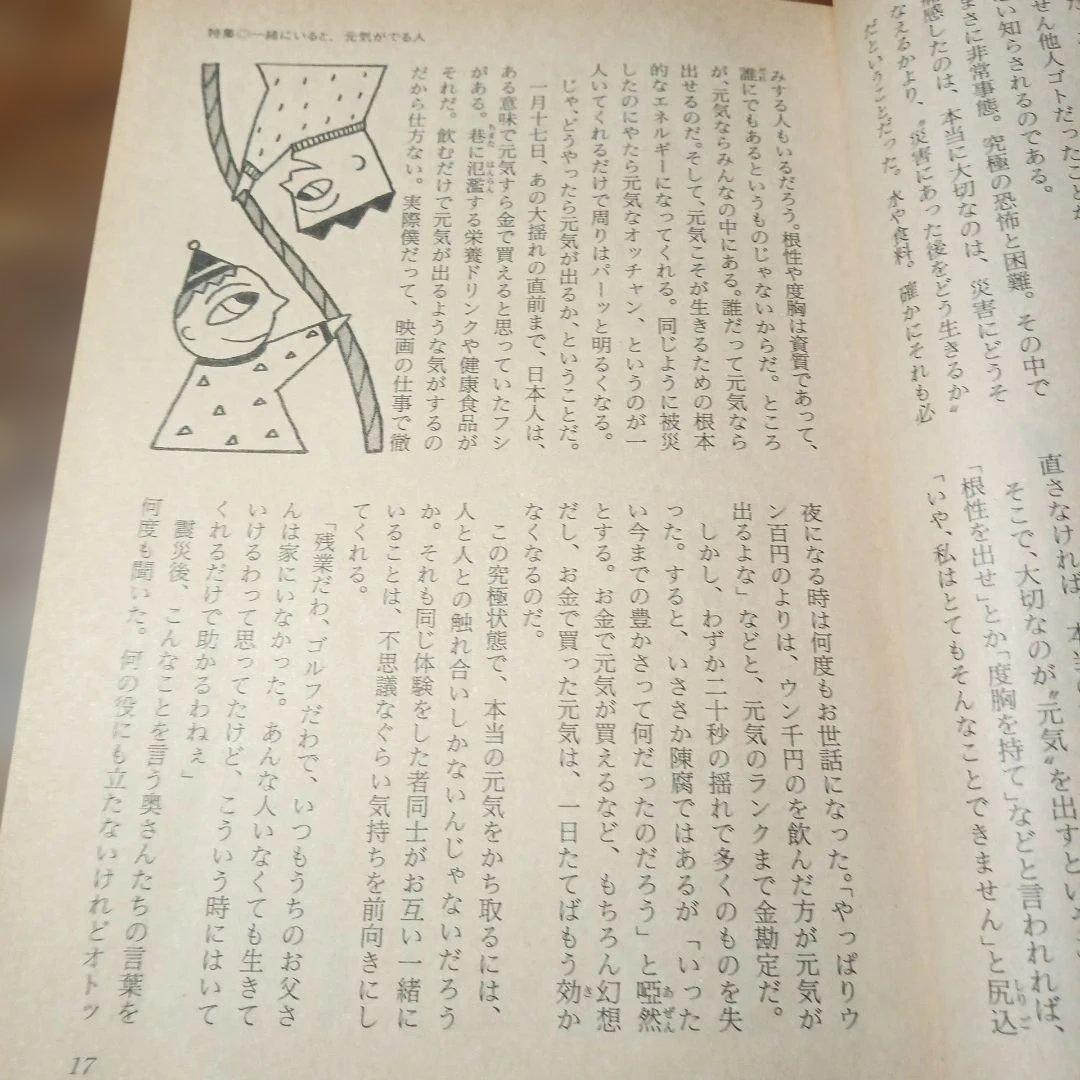 せん他人ゴトだったことが
い知らされるのである。
まさに非常事態。究極の恐怖と困難。その中で
感したのは、本当に大切なのは、災害にどうそ
なえるかより、〝災害にあった後をどう生きるか〟
だということだった。水や食料。確かにそれも必
直さなければ、
そこで、大切なのが〝元気〟を出すという
「根性を出せ」とか「度胸を持て」などと言われれば、
「いや、私はとてもそんなことできません」と尻込
特集◎一緒にいると、元気がでる人
みする人もいるだろう。根性や度胸は資質であって、
誰にでもあるというものじゃないからだ。ところ
が、元気ならみんなの中にある。誰だって元気なら
出せるのだ。そして、元気こそが生きるための根本
的なエネルギーになってくれる。同じように被災
したのにやたら元気なオッチャン、というのが一
人いてくれるだけで周りはパーッと明るくなる。
じゃ、どうやったら元気が出るか、ということだ。
一月十七日、あの大揺れの直前まで、日本人は、
ある意味で元気すら金で買えると思っていたフシ
がある。巷に氾濫する栄養ドリンクや健康食品が
それだ。飲むだけで元気が出るような気がするの
だから仕方ない。実際僕だって、映画の仕事で徹
夜になる時は何度もお世話になった。「やっぱりウ
ン百円のよりは、ウン千円のを飲んだ方が元気が
出るよな」などと、元気のランクまで金勘定だ。
しかし、わずか二十秒の揺れで多くのものを失
った。すると、いささか陳腐ではあるが「いった
い今までの豊かさって何だったのだろう」と啞然
とする。お金で元気が買えるなど、もちろん幻想
だし、お金で買った元気は、一日たてばもう効か
なくなるのだ。
この究極状態で、本当の元気をかち取るには、
人と人との触れ合いしかないんじゃないだろう
か。それも同じ体験をした者同士がお互い一緒に
いることは、不思議なぐらい気持ちを前向きにし
てくれる。
「残業だわ、ゴルフだわで、いつもうちのお父さ
んは家にいなかった。あんな人いなくても生きて
いけるわって思ってたけど、こういう時にはいて
くれるだけで助かるわねぇ」
震災後、こんなことを言う奥さんたちの言葉を
何度も聞いた。何の役にも立たないけれどオトッ
17